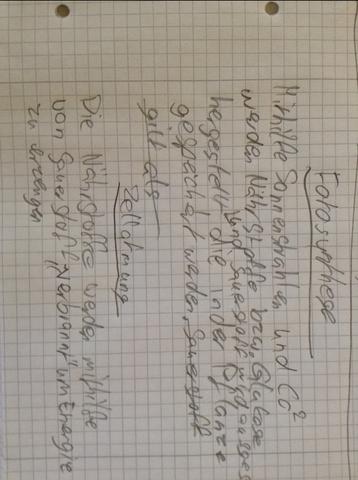 Fotosynthese
Mithilfe Sonnenstrahlen und Co²
werden Nährstoffe bzw. Glukose
und Sauerstoff wird ausges
hergestellt die in der Pflanze
gespeichert werden. Sauerstoff
gilt als
Zellatmung
Die Nährstoffe werden mithilfe
von Sauerstoff „verbrannt" um Energie
zu erzeugen